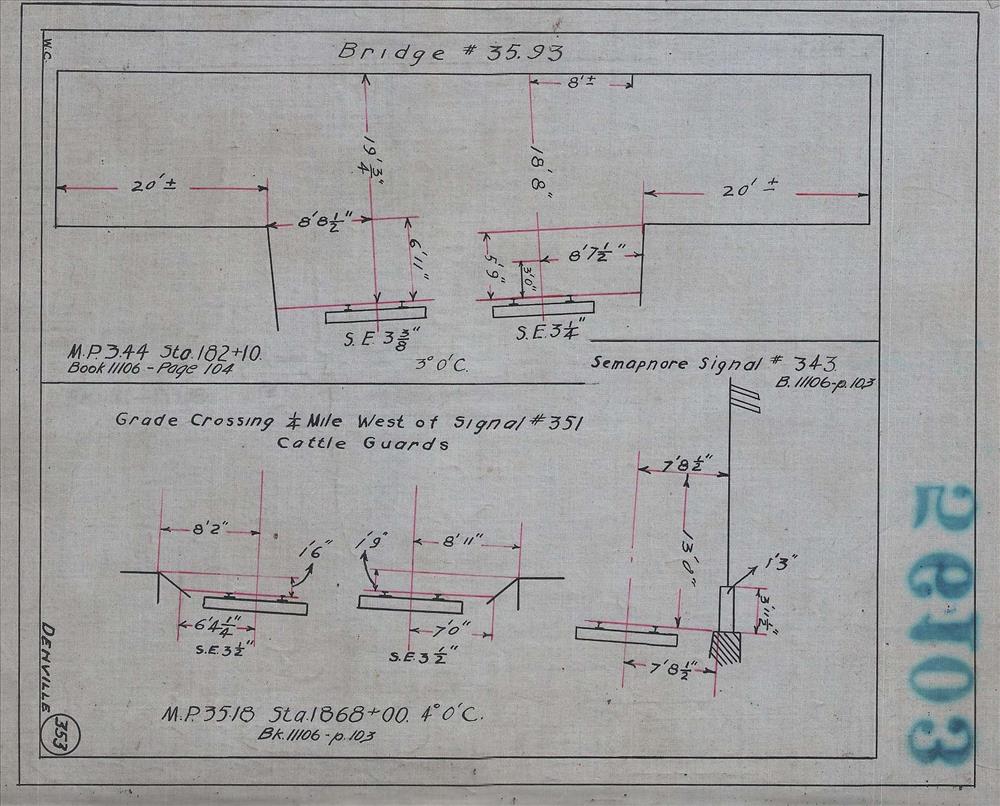 W.C.
Bridge # 35.93
8'±
19' 3/4"
18' 8"
20' ±
20' ±
8' 8 1/2"
6' 11"
5' 9"
3' 0"
8' 7 1/2"
S.E. 3 3/8"
S.E. 3 1/4"
M.P. 3.44 Sta. 182+10.
Book 11106 - Page 104
3° 0' C.
Semapnore Signal # 343
B. 11106-p. 103
Grade Crossing 1/4 Mile West of Signal # 351
Cattle Guards
7' 8 1/2"
8' 2"
1' 6"
1' 9"
8' 11"
13' 0"
1' 3"
3' 11 1/2"
6' 4 1/4"
S.E. 3 1/2"
7' 0"
S.E. 3 1/2"
7' 8 1/2"
M.P. 3518 Sta. 1868+00. 4° 0' C.
Bk. 11106-p. 103
DENVILLE
353
26103